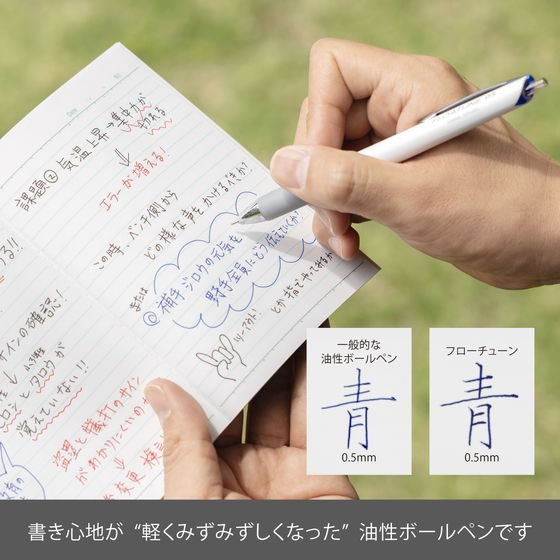 課題② 気温上昇→集中力が
切れる
エラーが増える!
この時、ベンチ側から
どの様な声をかけるべきか?
または
◎捕手ジロウの元気を
野手全員にどう伝えていくか!
ツーアウト!
とか指でやってみるか
る!!
サインの確認!
ロと タロウが
覚えていない!!
盗塁と犠打のサイン
がわかりにくいのかも
変更
一般的な
油性ボールペン
青
0.5mm
フローチューン
青
0.5mm
書き心地が“軽くみずみずしくなった”油性ボールペンです